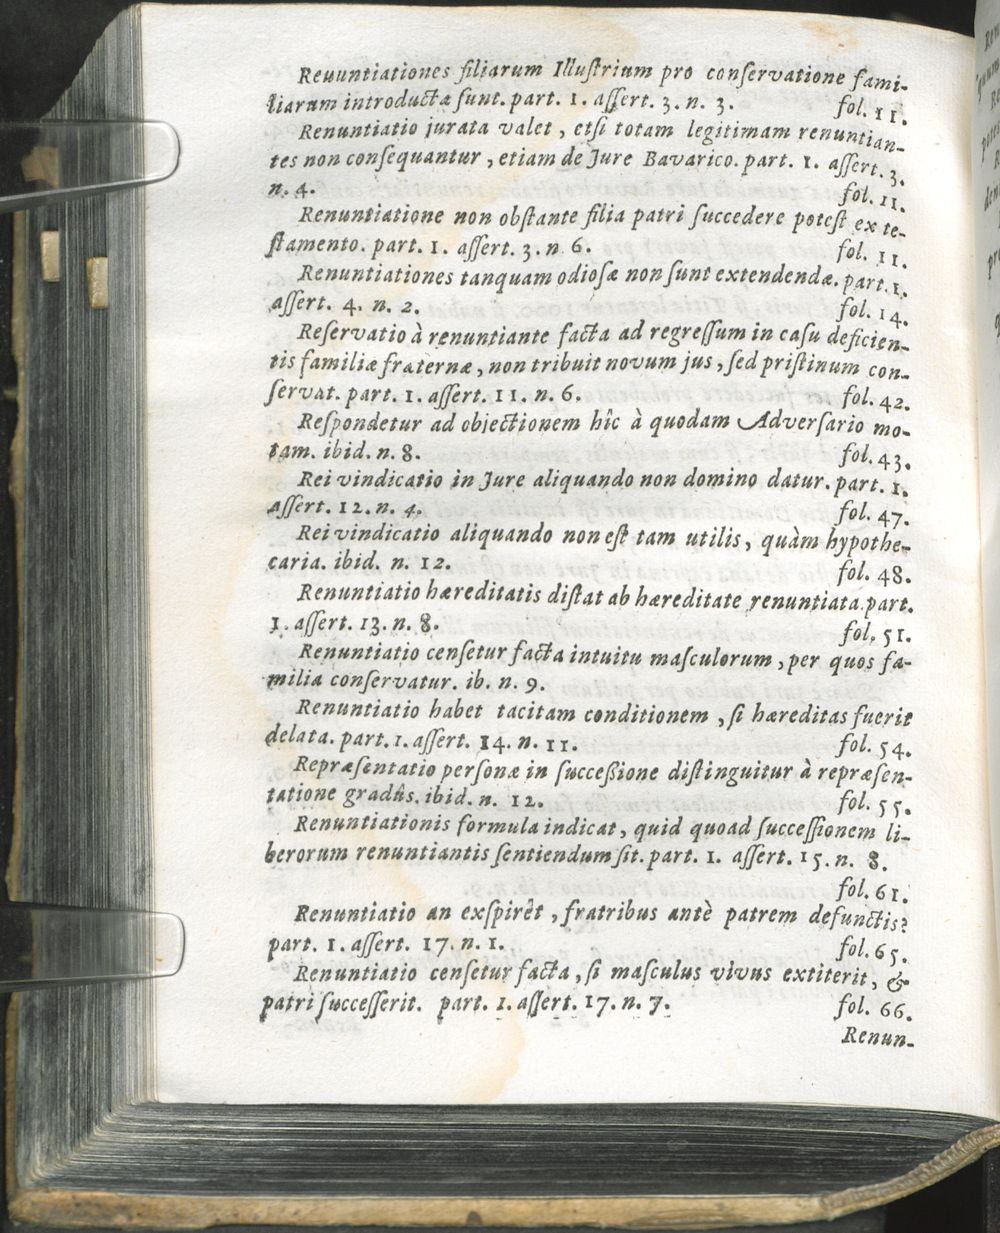 Reuuntiationes filiarum Illuſtrium pro conſervatione fami-
liarum introductæ ſunt. part. 1. aſſert. 3. n. 3. fol. 11.
Renuntiatio jurata valet, etſi totam legitimam renuntian-
tes non conſequantur, etiam de Jure Bavarico. part. 1. aſſert. 3.
n. 4. fol. 11.
Renuntiatione non obſtante filia patri ſuccedere poteſt ex te-
ſtamento. part. 1. aſſert. 3. n. 6. fol. 11.
Renuntiationes tanquam odioſæ non ſunt extendendæ. part. 1.
aſſert. 4. n. 2. fol. 14.
Reſervatio à renuntiante facta ad regreſſum in caſu deficien-
tis familiæ fraternæ, non tribuit novum jus, ſed priſtinum con-
ſervat. part. 1. aſſert. 11. n. 6. fol. 42.
Reſpondetur ad objectionem hîc à quodam Adverſario mo-
tam. ibid. n. 8. fol. 43.
Rei vindicatio in Jure aliquando non domino datur. part. 1.
aſſert. 12. n. 4. fol. 47.
Rei vindicatio aliquando non eſt tam utilis, quàm hypothe-
caria. ibid. n. 12. fol. 48.
Renuntiatio hæreditatis diſtat ab hæreditate renuntiata. part.
1. aſſert. 13. n. 8. fol. 51.
Renuntiatio cenſetur facta intuitu maſculorum, per quos fa-
milia conſervatur. ib. n. 9.
Renuntiatio habet tacitam conditionem, ſi hæreditas fuerit
delata. part. 1. aſſert. 14. n. 11. fol. 54.
Repræſentatio perſonæ in ſucceßione diſtinguitur à repræſen-
tatione gradûs. ibid. n. 12. fol. 55.
Renuntiationis formula indicat, quid quoad ſucceſſionem li-
berorum renuntiantis ſentiendum ſit. part. 1. aſſert. 15. n. 8.
fol. 61.
Renuntiatio an exſpirêt, fratribus antè patrem defunctis?
part. 1. aſſert. 17. n. 1. fol. 65.
Renuntiatio cenſetur facta, ſi maſculus vivus extiterit, &
patri ſucceſſerit. part. 1. aſſert. 17. n. 7. fol. 66.
Renun-